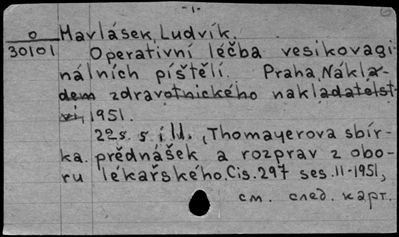 -1-
O Havlásek, Ludvík.
30101 Operativní léčba vesikovagi
nálních píštělí. Praha, Nákla-
dem zdravotnického nakladatelst
ví, 1951.
22s. s ill., Thomayerova sbír
ka prědnášek a rozprav z obo-
ru lékařského. Čis. 297 ses. 11-1951,
см. след. карт.